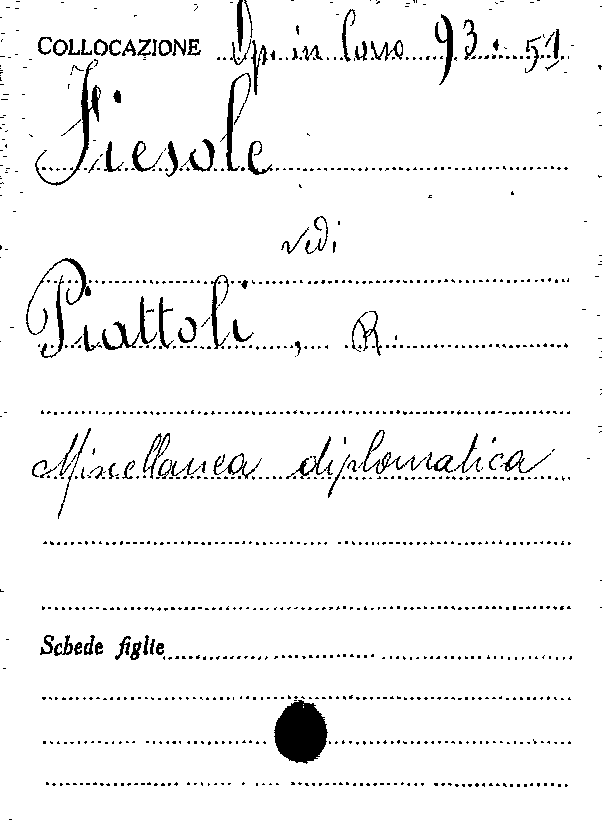 COLLOCAZIONE Op. in Corso 93. 51
Fiesole
vedi
Piattoli, R.
Miscellanea diplomatica
Schede figlie